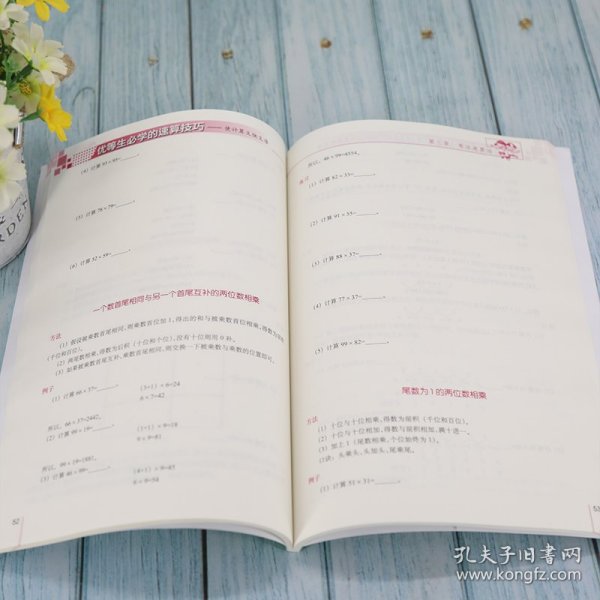 优等生必学的速算技巧——使计算又快又准
(4) 计算 93×95=______。
(5) 计算 78×79=______。
(6) 计算 52×59=______。
一个数首尾相同与另一个首尾互补的两位数相乘
方法
(1) 假设被乘数首尾相同,则乘数首位加1,得出的和与被乘数首位相乘,得数为前积
(千位和百位)。
(2) 两尾数相乘,得数为后积(十位和个位),没有十位则用0补。
(3) 如果被乘数首尾互补,乘数首尾相同,则交换一下被乘数与乘数的位置即可。
例子
(1) 计算 66×37=______。 (3+1)×6=24
6×7=42
所以, 66×37=2442。
(2) 计算 99×19=______。 (1+1)×9=18
9×9=81
所以, 99×19=1881。
(3) 计算 46×99=______。 (4+1)×9=45
6×9=54
52
所以, 46×99=4554。
练习
(1) 计算 82×33=______。
(2) 计算 91×55=______。
(3) 计算 88×37=______。
(4) 计算 77×37=______。
(5) 计算 99×82=______。
尾数为1的两位数相乘
方法
(1) 十位与十位相乘,得数为前积(千位和百位)。
(2) 十位与十位相加,得数与前积相加,满十进一。
(3) 加上1(尾数相乘,个位始终为1)。
口诀: 头乘头,头加头,尾乘尾。
例子
(1) 计算 51×31=______。
53
孔夫子旧书网
www.kongfz.com